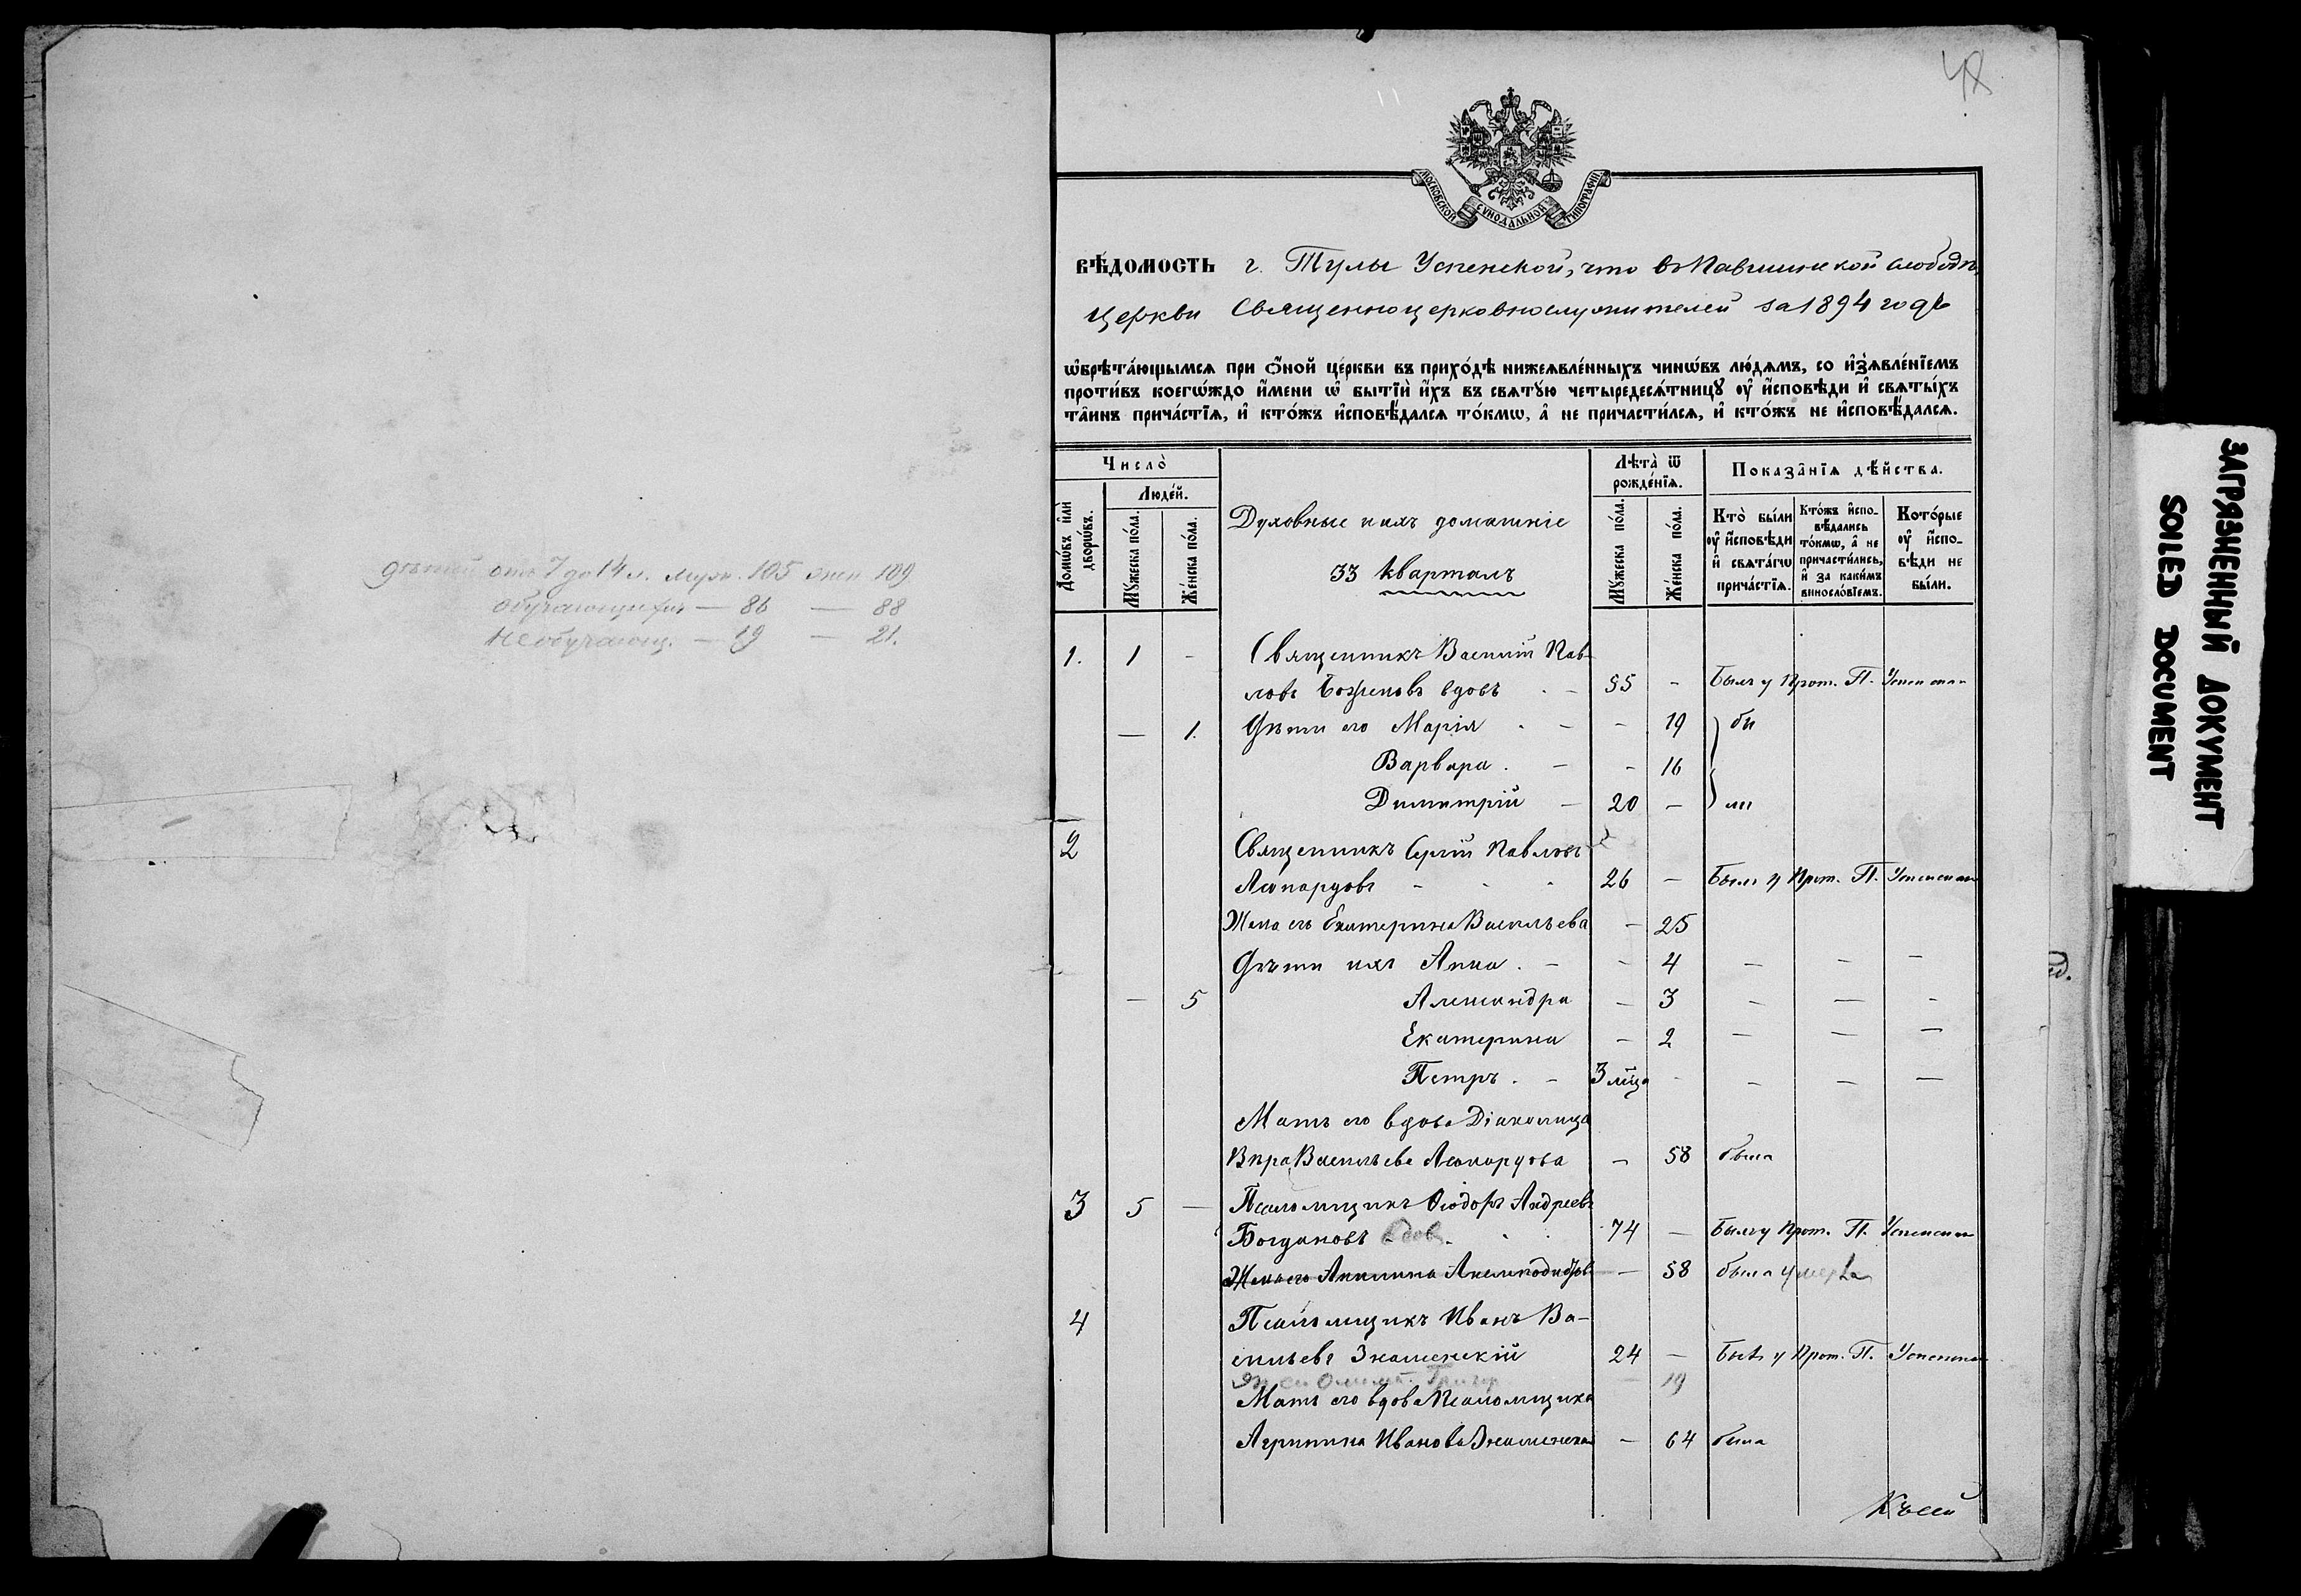 дѣтей отъ 7 до 14 л. муж. 105 жен 109
обучающихся — 86 — 88
необучающ. — 19 — 21.
48
МОСКОВСКОЙ СУНОДАЛЬНОЙ ТИПОГРАФІИ
ВѢДОМОСТЬ г. Тулы Успенской, что въ Павшинской слободѣ,
церкви Священноцерковнослужителей за 1894 годъ
ѡ҆брѣта́ющымся при ѻ҆́ной це́ркви въ прихо́дѣ нижеѧвле́нныхъ чинѡ́въ лю́дѧмъ, со и҆з̾ѧвле́нїемъ
проти́въ коегѡ́ждо и҆́мени ѡ҆ бытїѝ и҆́хъ въ свѧту́ю четыредесѧ́тницꙋ ᲂу҆ и҆́сповѣди и҆ свѧты́хъ
та̑инъ прича́стїѧ, и҆ кто́жъ и҆сповѣ́далсѧ то́кмѡ, а҆ не причасти́лсѧ, и҆ кто́жъ не и҆сповѣ́далсѧ.
Число̀
Людей.
Домѡ́въ и҆лѝ дворѡ́въ.
Мꙋ́жеска по́ла.
Же́нска по́ла.
Духовные и ихъ домашніе
33 кварталъ
Лѣта̀ ѿ рожде́нїѧ.
Мꙋ́жеска по́ла.
Же́нска по́ла.
Показа̑нїѧ дѣ́йства.
Кто̀ бы́ли ᲂу҆ и҆́сповѣди и҆ свѧта́гѡ прича́стїѧ.
Кто́жъ и҆спо-вѣ́дались то́кмѡ, а҆ не причасти́лись, и҆ за каки́мъ виносло́вїемъ.
Кото́рые ᲂу҆ и҆́спо-вѣди не бы́ли.
1. 1 - Священникъ Василій Пав-
ловъ вдовъ - 55 - Былъ у Прот. П. Успенскаго
— 1. Дѣти его Марія - - 19 бы
Варвара. - - 16
Димитрій - 20 - ли
2 Священникъ Сергій Павловъ
Леопардовъ - 26 - Былъ у Прот. П. Успенскаго
Жена его Екатерина Васильева - 25
Дѣти ихъ Анна. - - 4 - - -
- 5 Александра - 3 - - -
Екатерина - 2 - - -
Петръ. - 3 мѣсца - - - -
Мать его вдова Діаконица
Вѣра Васильева Леопардова - 58 была
3 5 - Псаломщикъ Ѳеодоръ Андреевъ
Богдановъ вдов. 74 - Былъ у Прот. П. Успенскаго
Жена его Акилина - 58 была умерла
4 Псаломщикъ Иванъ Ва-
сильевъ Знаменскій 24 - Былъ у Прот. П. Успенскаго
19
Мать его вдова Псаломщика
Агрипина Иванова Знаменская - 64 была
ЗАГРЯЗНЕННЫЙ ДОКУМЕНТ
SOILED DOCUMENT